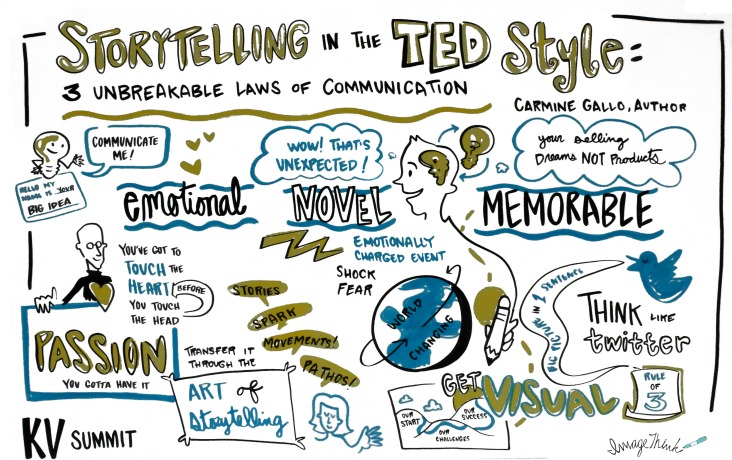 STORYTELLING IN THE TED Style:
3 UNBREAKABLE LAWS OF COMMUNICATION
CARMINE GALLO, AUTHOR
COMMUNICATE
ME!
HELLO MY
NAME IS YOUR
BIG IDEA
WOW! THAT'S
UNEXPECTED!
your selling
Dreams NOT Products
emotional
NOVEL
MEMORABLE
YOU'VE GOT TO
TOUCH THE
HEART BEFORE
YOU TOUCH
THE HEAD
PASSION
YOU GOTTA HAVE IT
STORIES
SPARK
MOVEMENTS!
PATHOS!
TRANSFER IT
THROUGH THE
ART of
Storytelling
EMOTIONALLY
CHARGED EVENT
SHOCK
FEAR
WORLD
CHANGING
BIG PICTURE IN 1 SENTENCE
THINK LIKE
twitter
GET VISUAL
OUR
START
OUR
SUCCESS
OUR
CHALLENGES
RULE
OF
3
KV SUMMIT
ImageThink